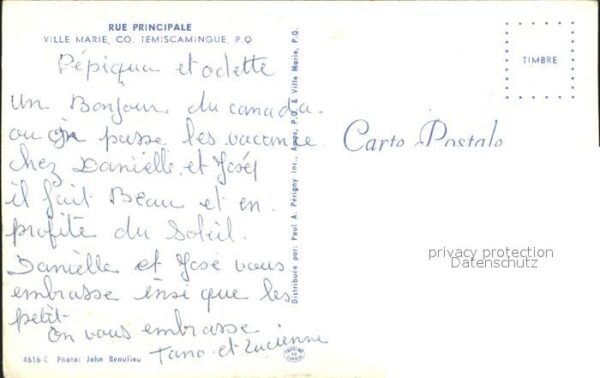 RUE PRINCIPALE
VILLE MARIE, CO. TEMISCAMINGUE, P.Q
et odette
un Bonjour du canada.
ou je passe les vacance
chez Danielle et José
il fait Beau et en
profite du Soleil.
Danielle et José vous
embrasse insi que les
petit
on vous embrasse
Tano et Lucienne
4616-C Photo: John Beaulieu
Distribuée par: Paul A. Périgny Inc., Amos, P.Q. & Ville Marie, P.Q.
TIMBRE
Carte Postale
privacy protection
Datenschutz